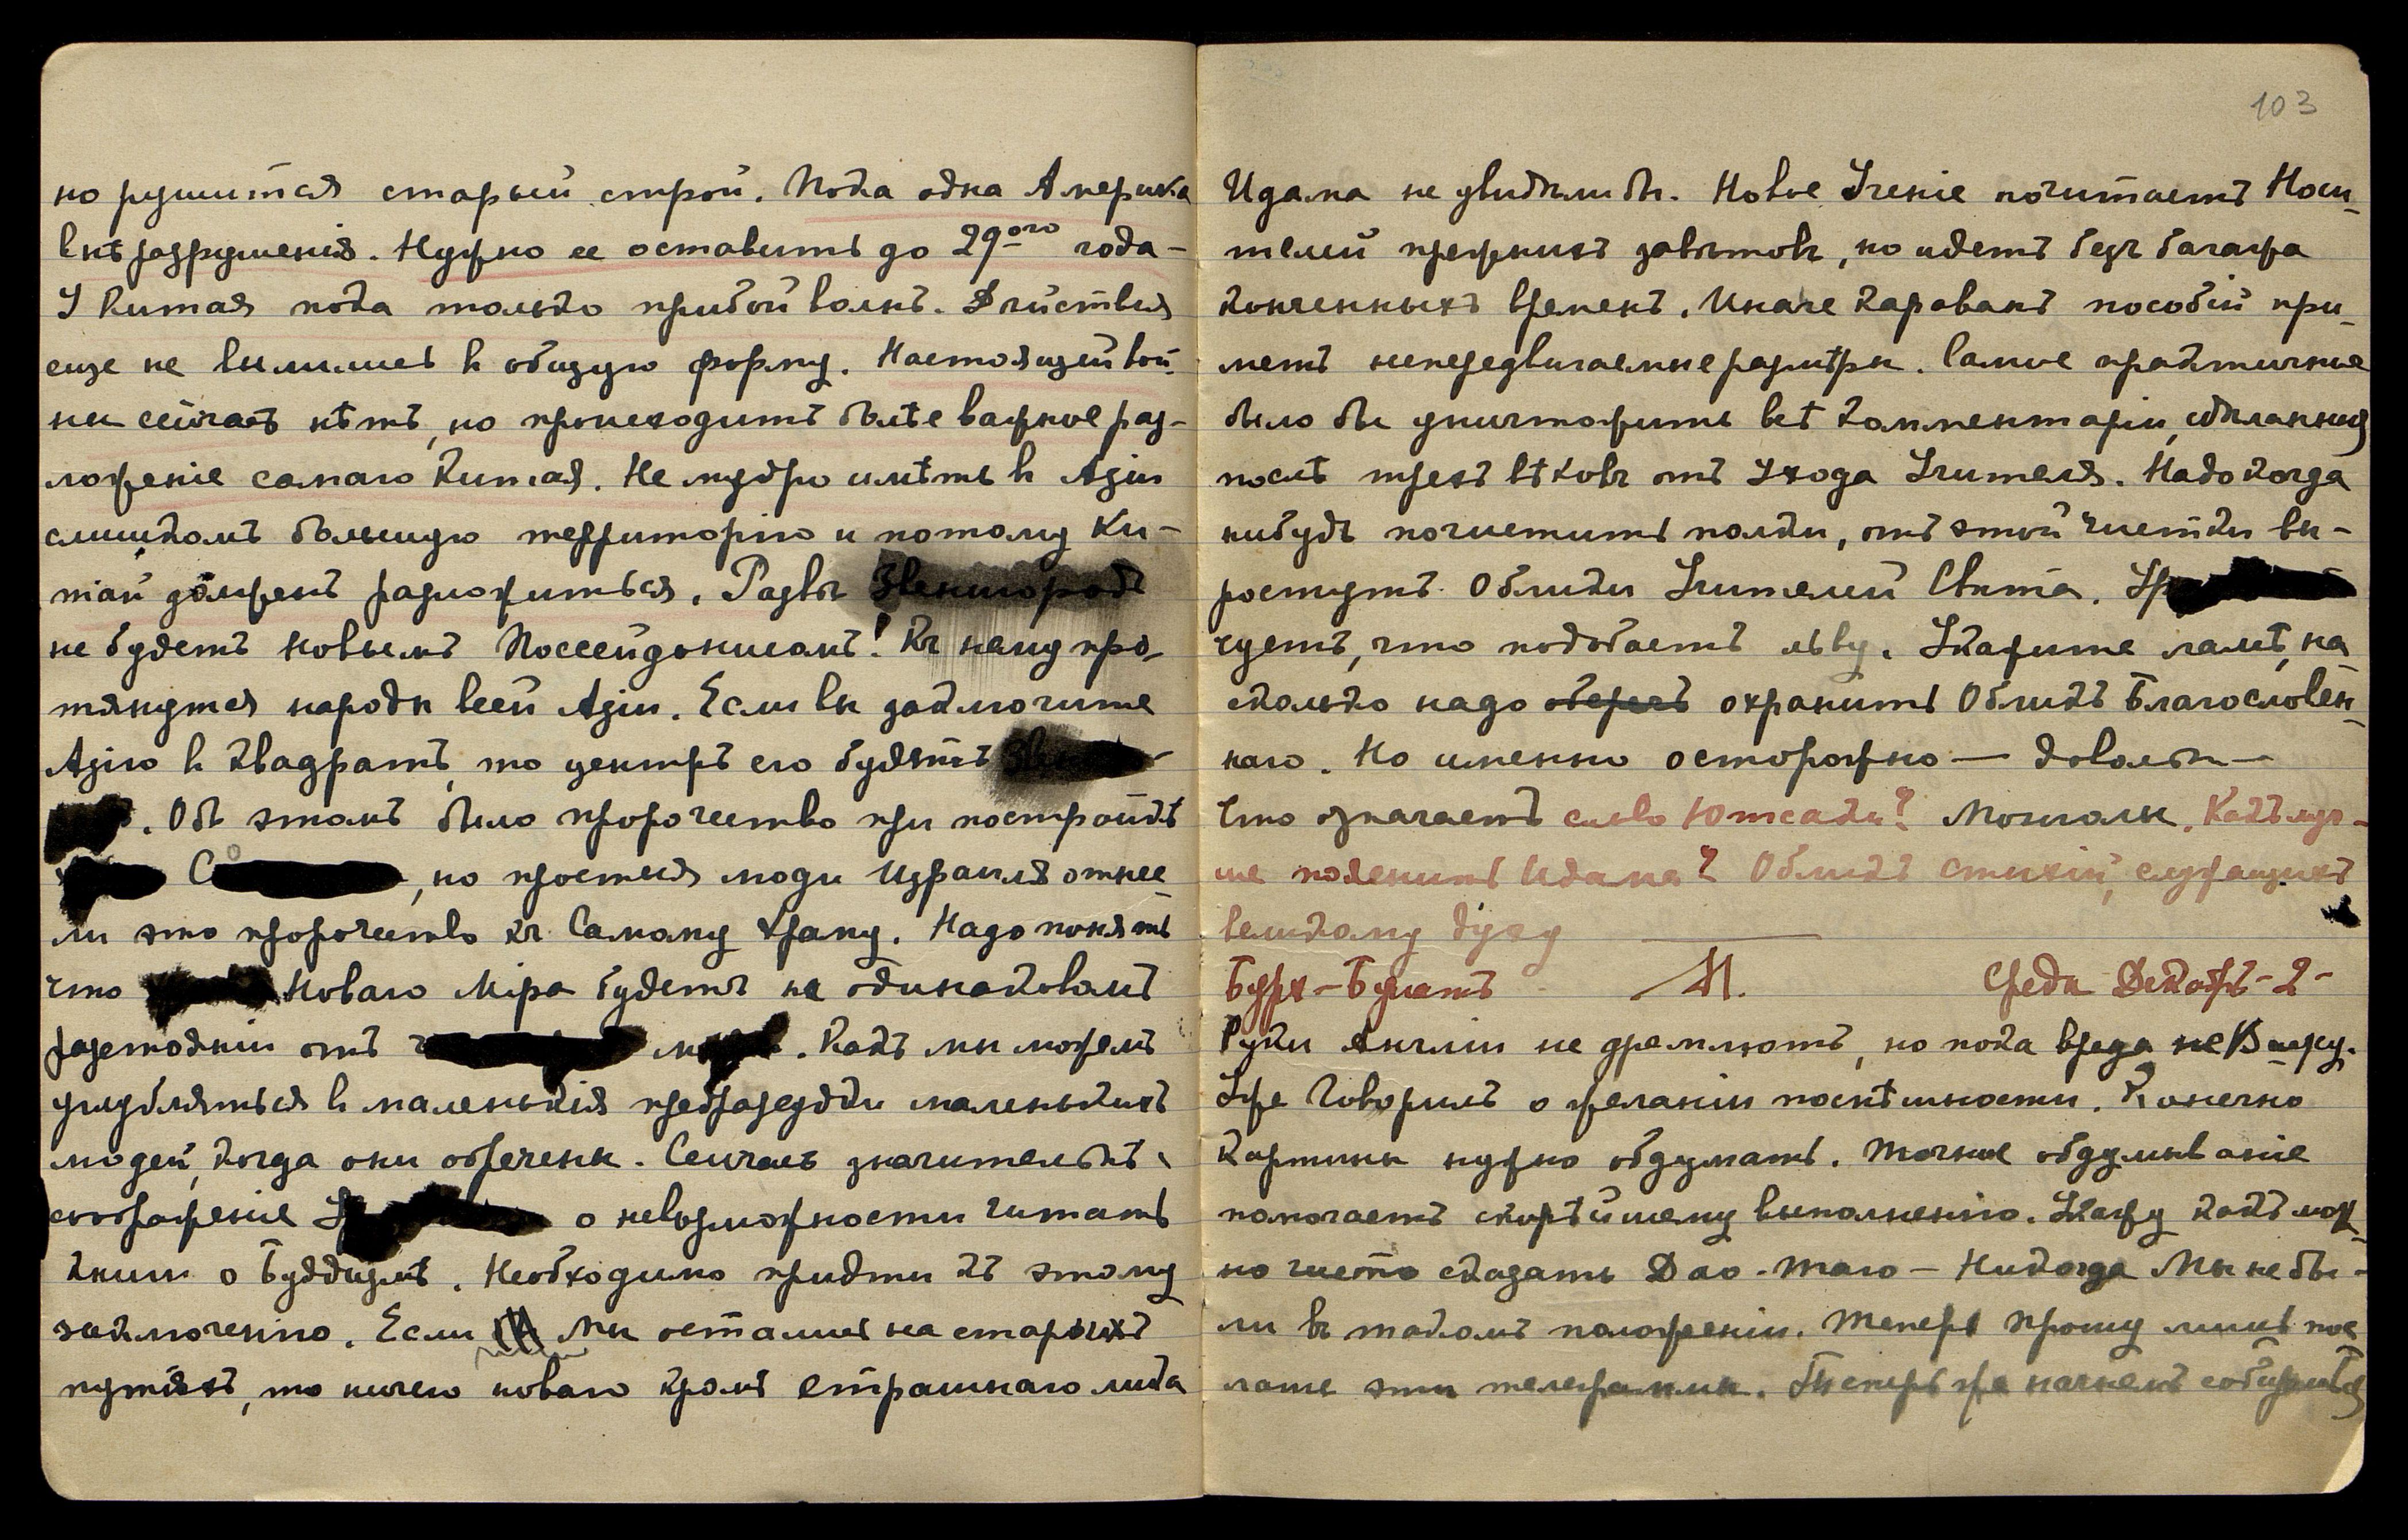 но рушится старый строй. Пока одна Америка
внѣ разрушенія. Нужно ее оставить до 29ого года –
У Китая пока только прибой волнъ. Дѣйствія
еще не вылились в общую форму. Настоящей вой-
ны сейчасъ нѣтъ, но происходитъ болѣе важное раз-
ложеніе самаго Китая. Не мудро имѣть в Азіи
слишкомъ большую территорію и потому Ки-
тай долженъ разложиться. Развѣ Звенигородъ
не будетъ новымъ Посейдонисомъ! Къ нему про-
тянутся народы всей Азіи. Если вы заключите
Азію в квадратъ, то центръ его будетъ
. Объ этомъ было пророчество при постройкѣ
С , но простые люди Израиля отнес-
ли это пророчество къ Самому Храму. Надо понять
что Новаго Міра будетъ на одинаковомъ
разстояніи отъ . Какъ мы можемъ
углубляться в маленькія предразсудки маленькихъ
людей, когда они обречены. Сейчасъ значительнѣе
соображеніе о невозможности читать
книги о Буддизмѣ. Необходимо придти къ этому
заключенію. Если мы остались на старыхъ
путяхъ, то ничего новаго кромѣ страшнаго лика
103
Идама не увидѣли бы. Новое Ученіе почитаетъ Носи-
телей прежнихъ завѣтовъ, но идетъ безъ багажа
конченныхъ временъ. Иначе караванъ пособій при-
метъ непередвигаемые размѣры. Самое практичное
было бы уничтожить всѣ комментаріи, сдѣланныя
послѣ трехъ вѣковъ отъ Ухода Учителя. Надо когда
нибудь почистить полки, отъ этой чистки вы-
ростутъ Облики Учителей Свѣта.
чуетъ, что подобаетъ льву. Укажите ламѣ, на
сколько надо оберечь охранить Обликъ Благословен-
наго. Но именно осторожно – довольн –
Что означаетъ слово Ютсаки? Монголы. Какъ луч-
ше пояснить Идама? Обликъ стихій, служащихъ
великому духу
Бурх-Булатъ М. Среда Декабрь-2-
Руки Англіи не дремлютъ, но пока вреда не Вижу.
Уже Говорилъ о желаніи поспѣшности. Конечно
картины нужно обдумать. Точное обдумываніе
помогаетъ скорѣйшему выполненію. Укажу какъ мож-
но чисто сказать Дао-Тао – Никогда Мы не бы-
ли въ такомъ положеніи. Теперь прошу лишь пос-
лать эти телеграммы. Теперь же начнемъ собираться